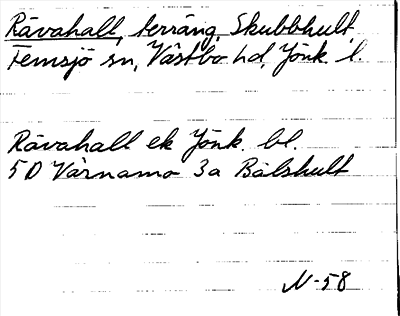 Rävahall, terräng, Skubbhult,
Femsjö sn, Västbo hd, Jönk. l.
Rävahall ek Jönk. bl.
5D Värnamo 3a Bälshult
N-58